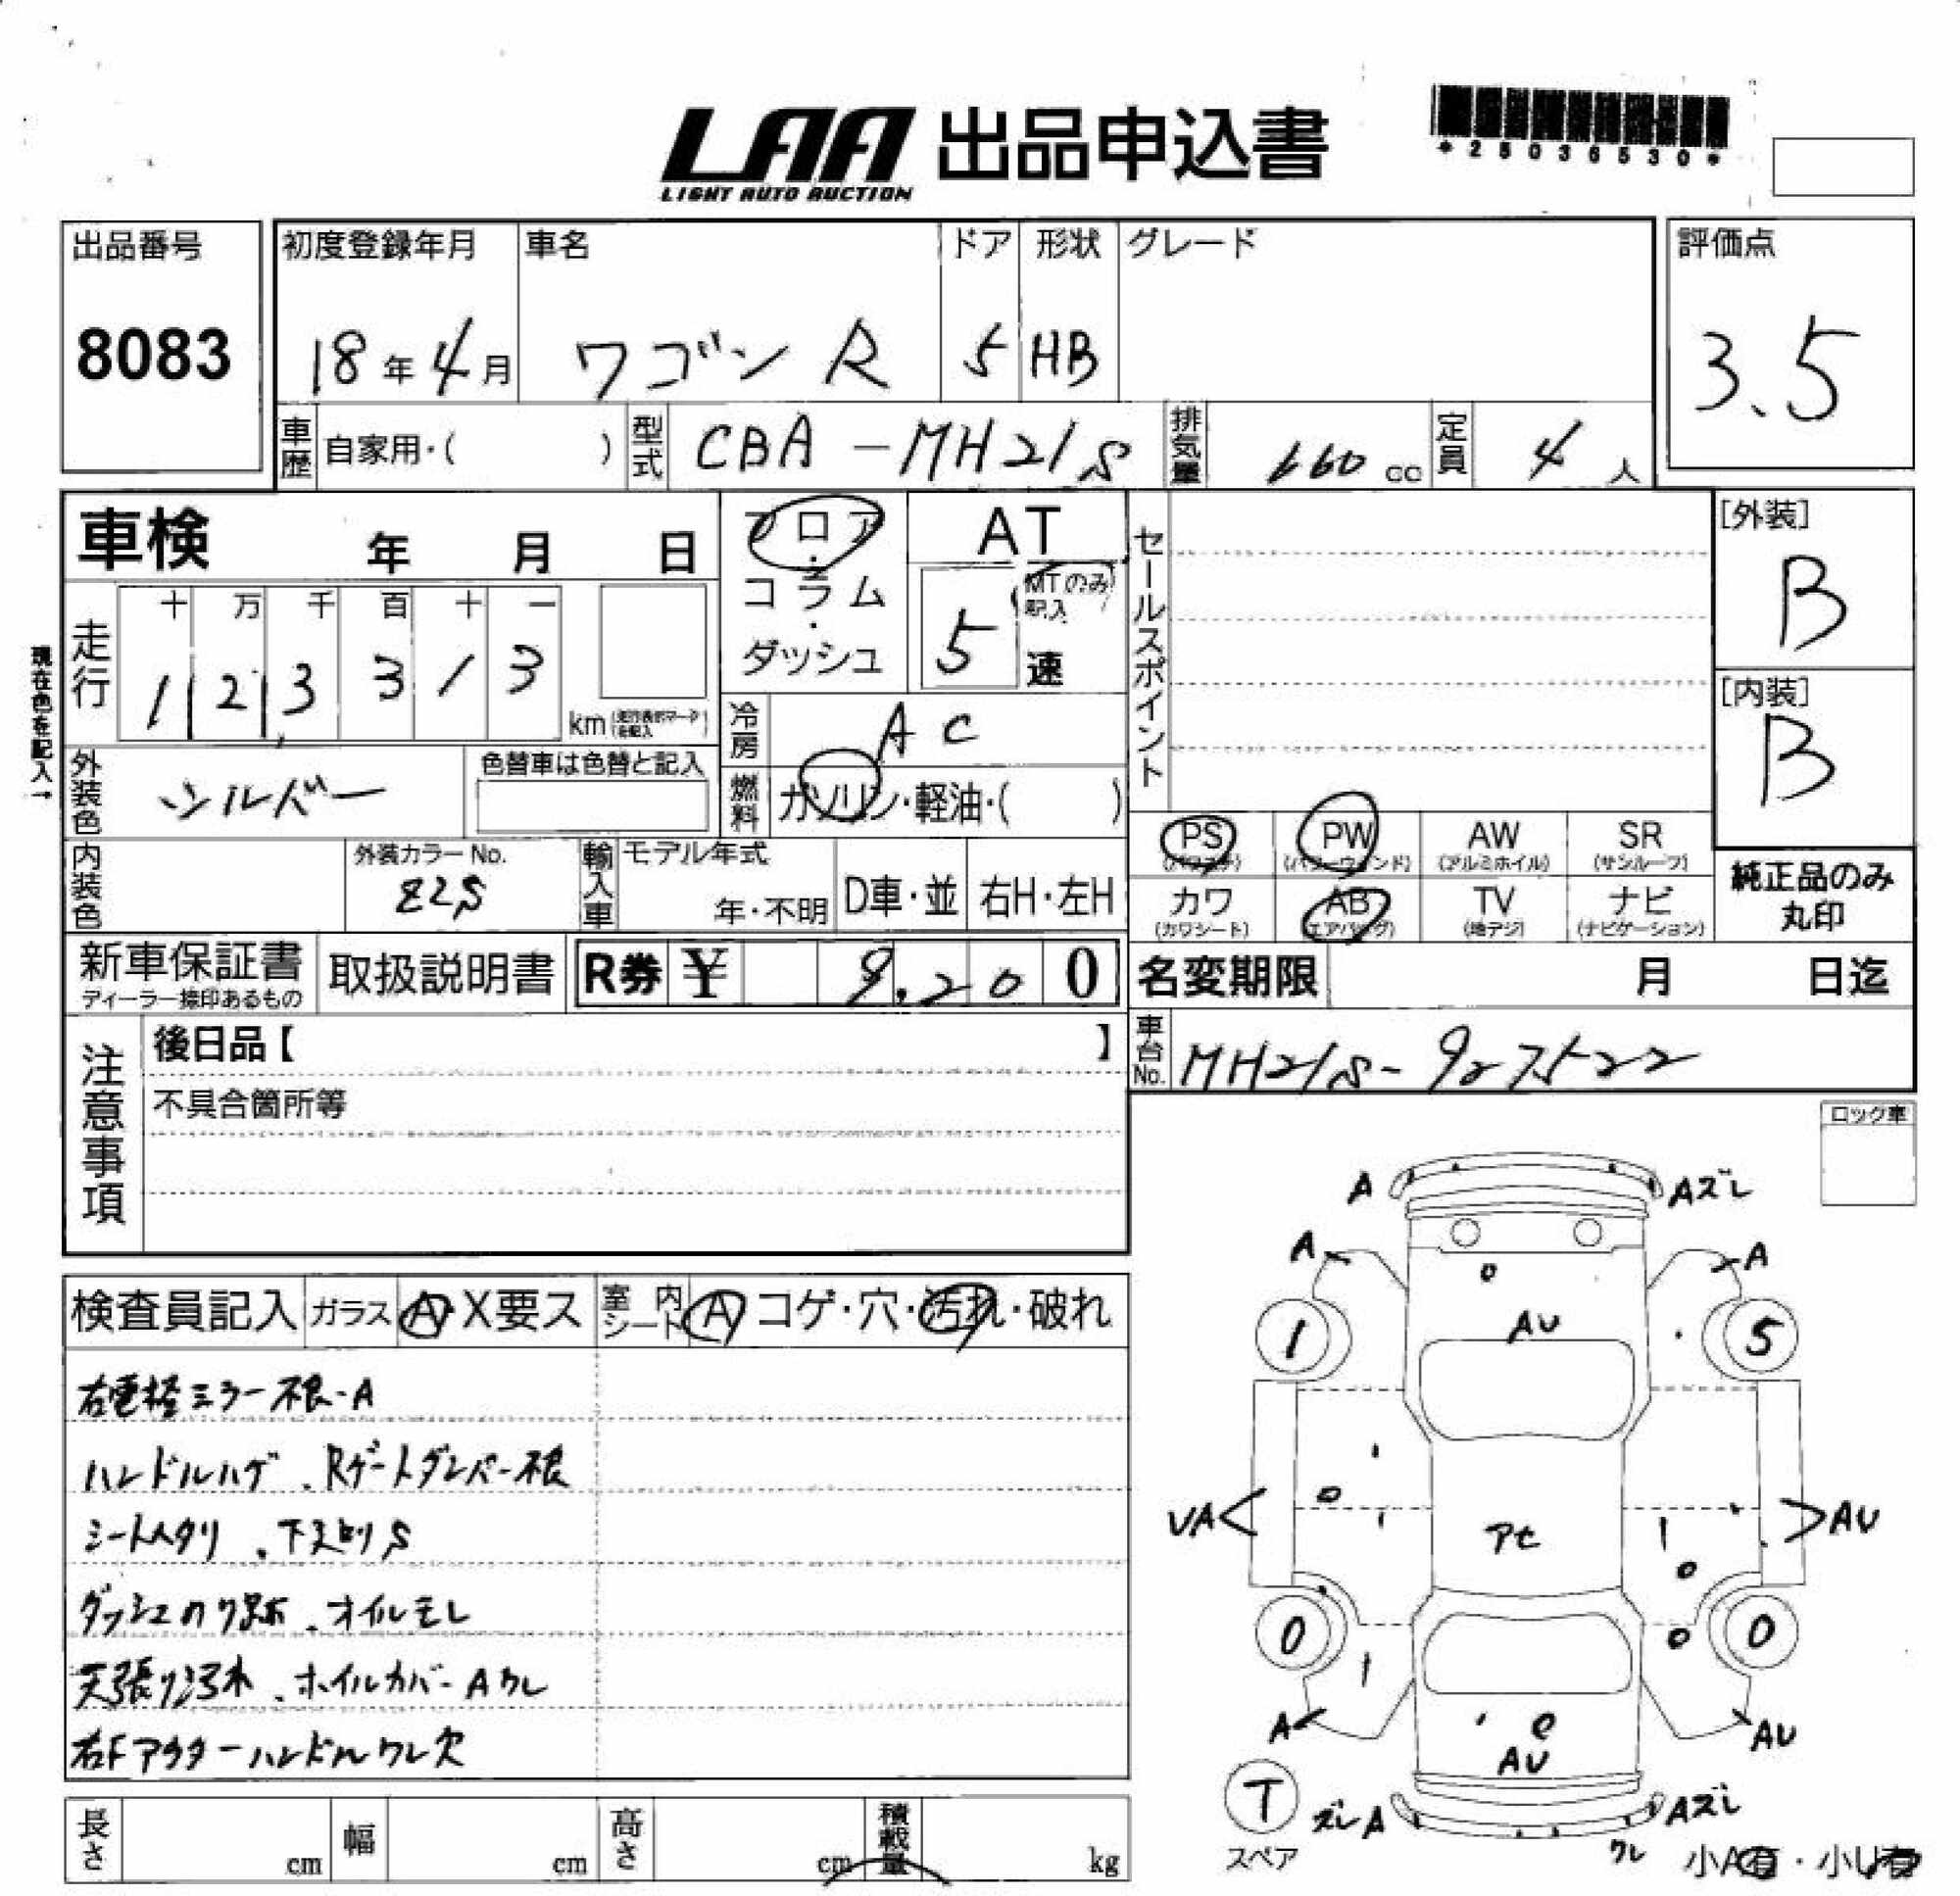 LAA 出品申込書
LIGHT AUTO AUCTION
*25036530*
出品番号
8083
初度登録年月
18年4月
車名
ワゴン R
ドア
5
形状
HB
グレード
評価点
3.5
車歴 自家用・( )
型式 CBA-MH21S
排気量 660 cc
定員 4 人
車検 年 月 日
フロア・コラム・ダッシュ
AT
MTのみ記入
5 速
セールスポイント
[外装]
B
[内装]
B
現在色を記入→
走行
十 万 千 百 十 一
1 2 3 3 1 3
km (走行表示マークを記入)
冷房 AC
外装色 シルバー
色替車は色替と記入
燃料 ガソリン・軽油・( )
内装色
外装カラーNo.
Z2S
輸入車
モデル年式
年・不明
D車・並
右H・左H
PS (パワステ)
PW (パワーウィンド)
AW (アルミホイル)
SR (サンルーフ)
カワ (カワシート)
AB (エアバッグ)
TV (地デジ)
ナビ (ナビゲーション)
純正品のみ丸印
新車保証書
ディーラー捺印あるもの
取扱説明書
R券 ¥ 9,200
名変期限 月 日迄
注意事項
後日品【 】
不具合箇所等
車台No. MH21S-927522
ロック車
検査員記入
ガラス A・X要ス
室内シート A コゲ・穴・汚れ・破れ
右電格ミラー不良-A
ハンドルハゲ.Rゲートダンパー不良
シートヘタリ.下廻りS
ダッシュノリ跡.オイルモレ
天張り汚れ.ホイルカバーAワレ
右Fアウターハンドルワレ欠
A
Aズレ
A
A
1
AU
5
UA
アセ
AU
0
0
A
AU
AU
T
スペア
ズレA
Aズレ
ワレ
小A有・小U有
長さ cm
幅 cm
高さ cm
積載量 kg